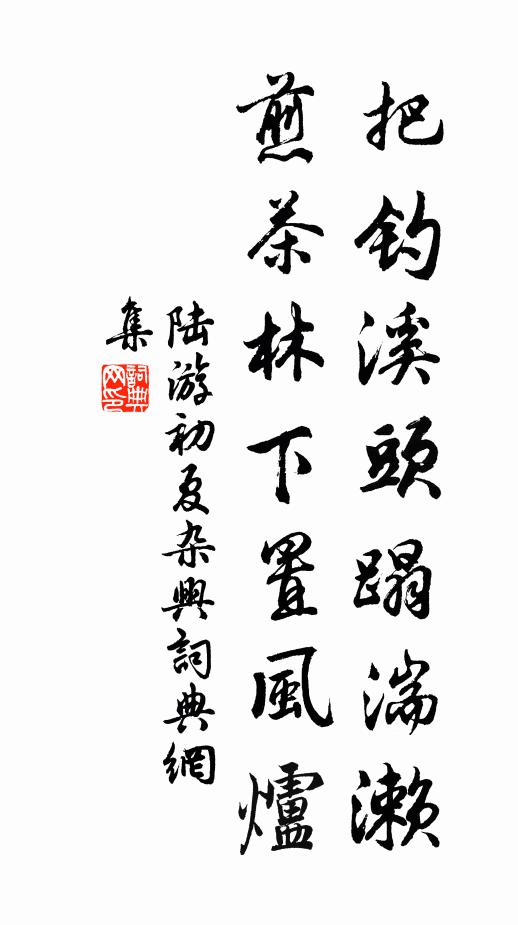 把釣溪頭蹋湍瀨
煎茶林下置風爐
陸游初夏杂興詞典網
集
詞典
网印